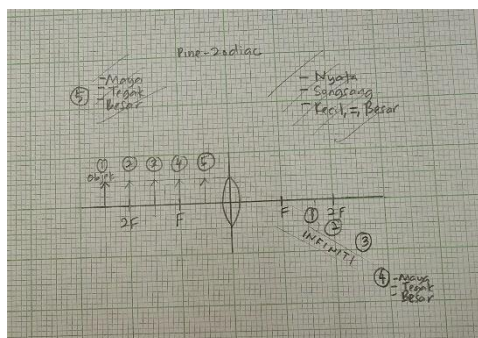 Pine-Zodiac
⑤ - Maya
- Tegak
- Besar
- Nyata
- Songsang
- Kecil, =, Besar
① ② ③ ④ ⑤
Objek
2F F F ① 2F
②
③
INFINITI
④ - Maya
- Tegak
- Besar